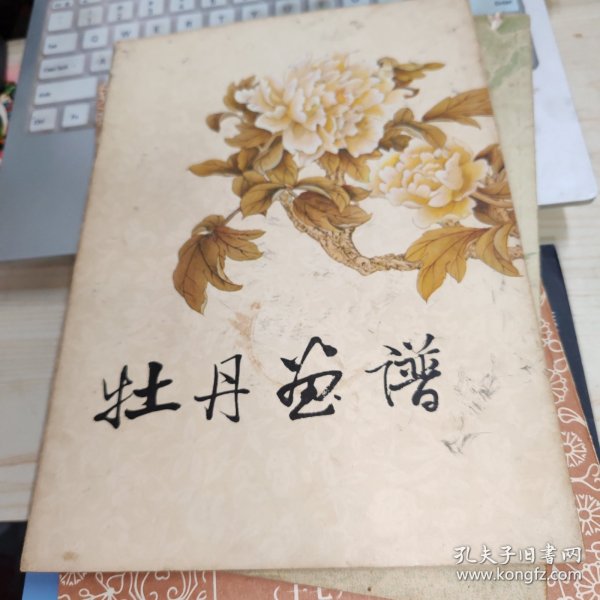 牡丹画谱
孔夫子旧书网
www.kongfz.com